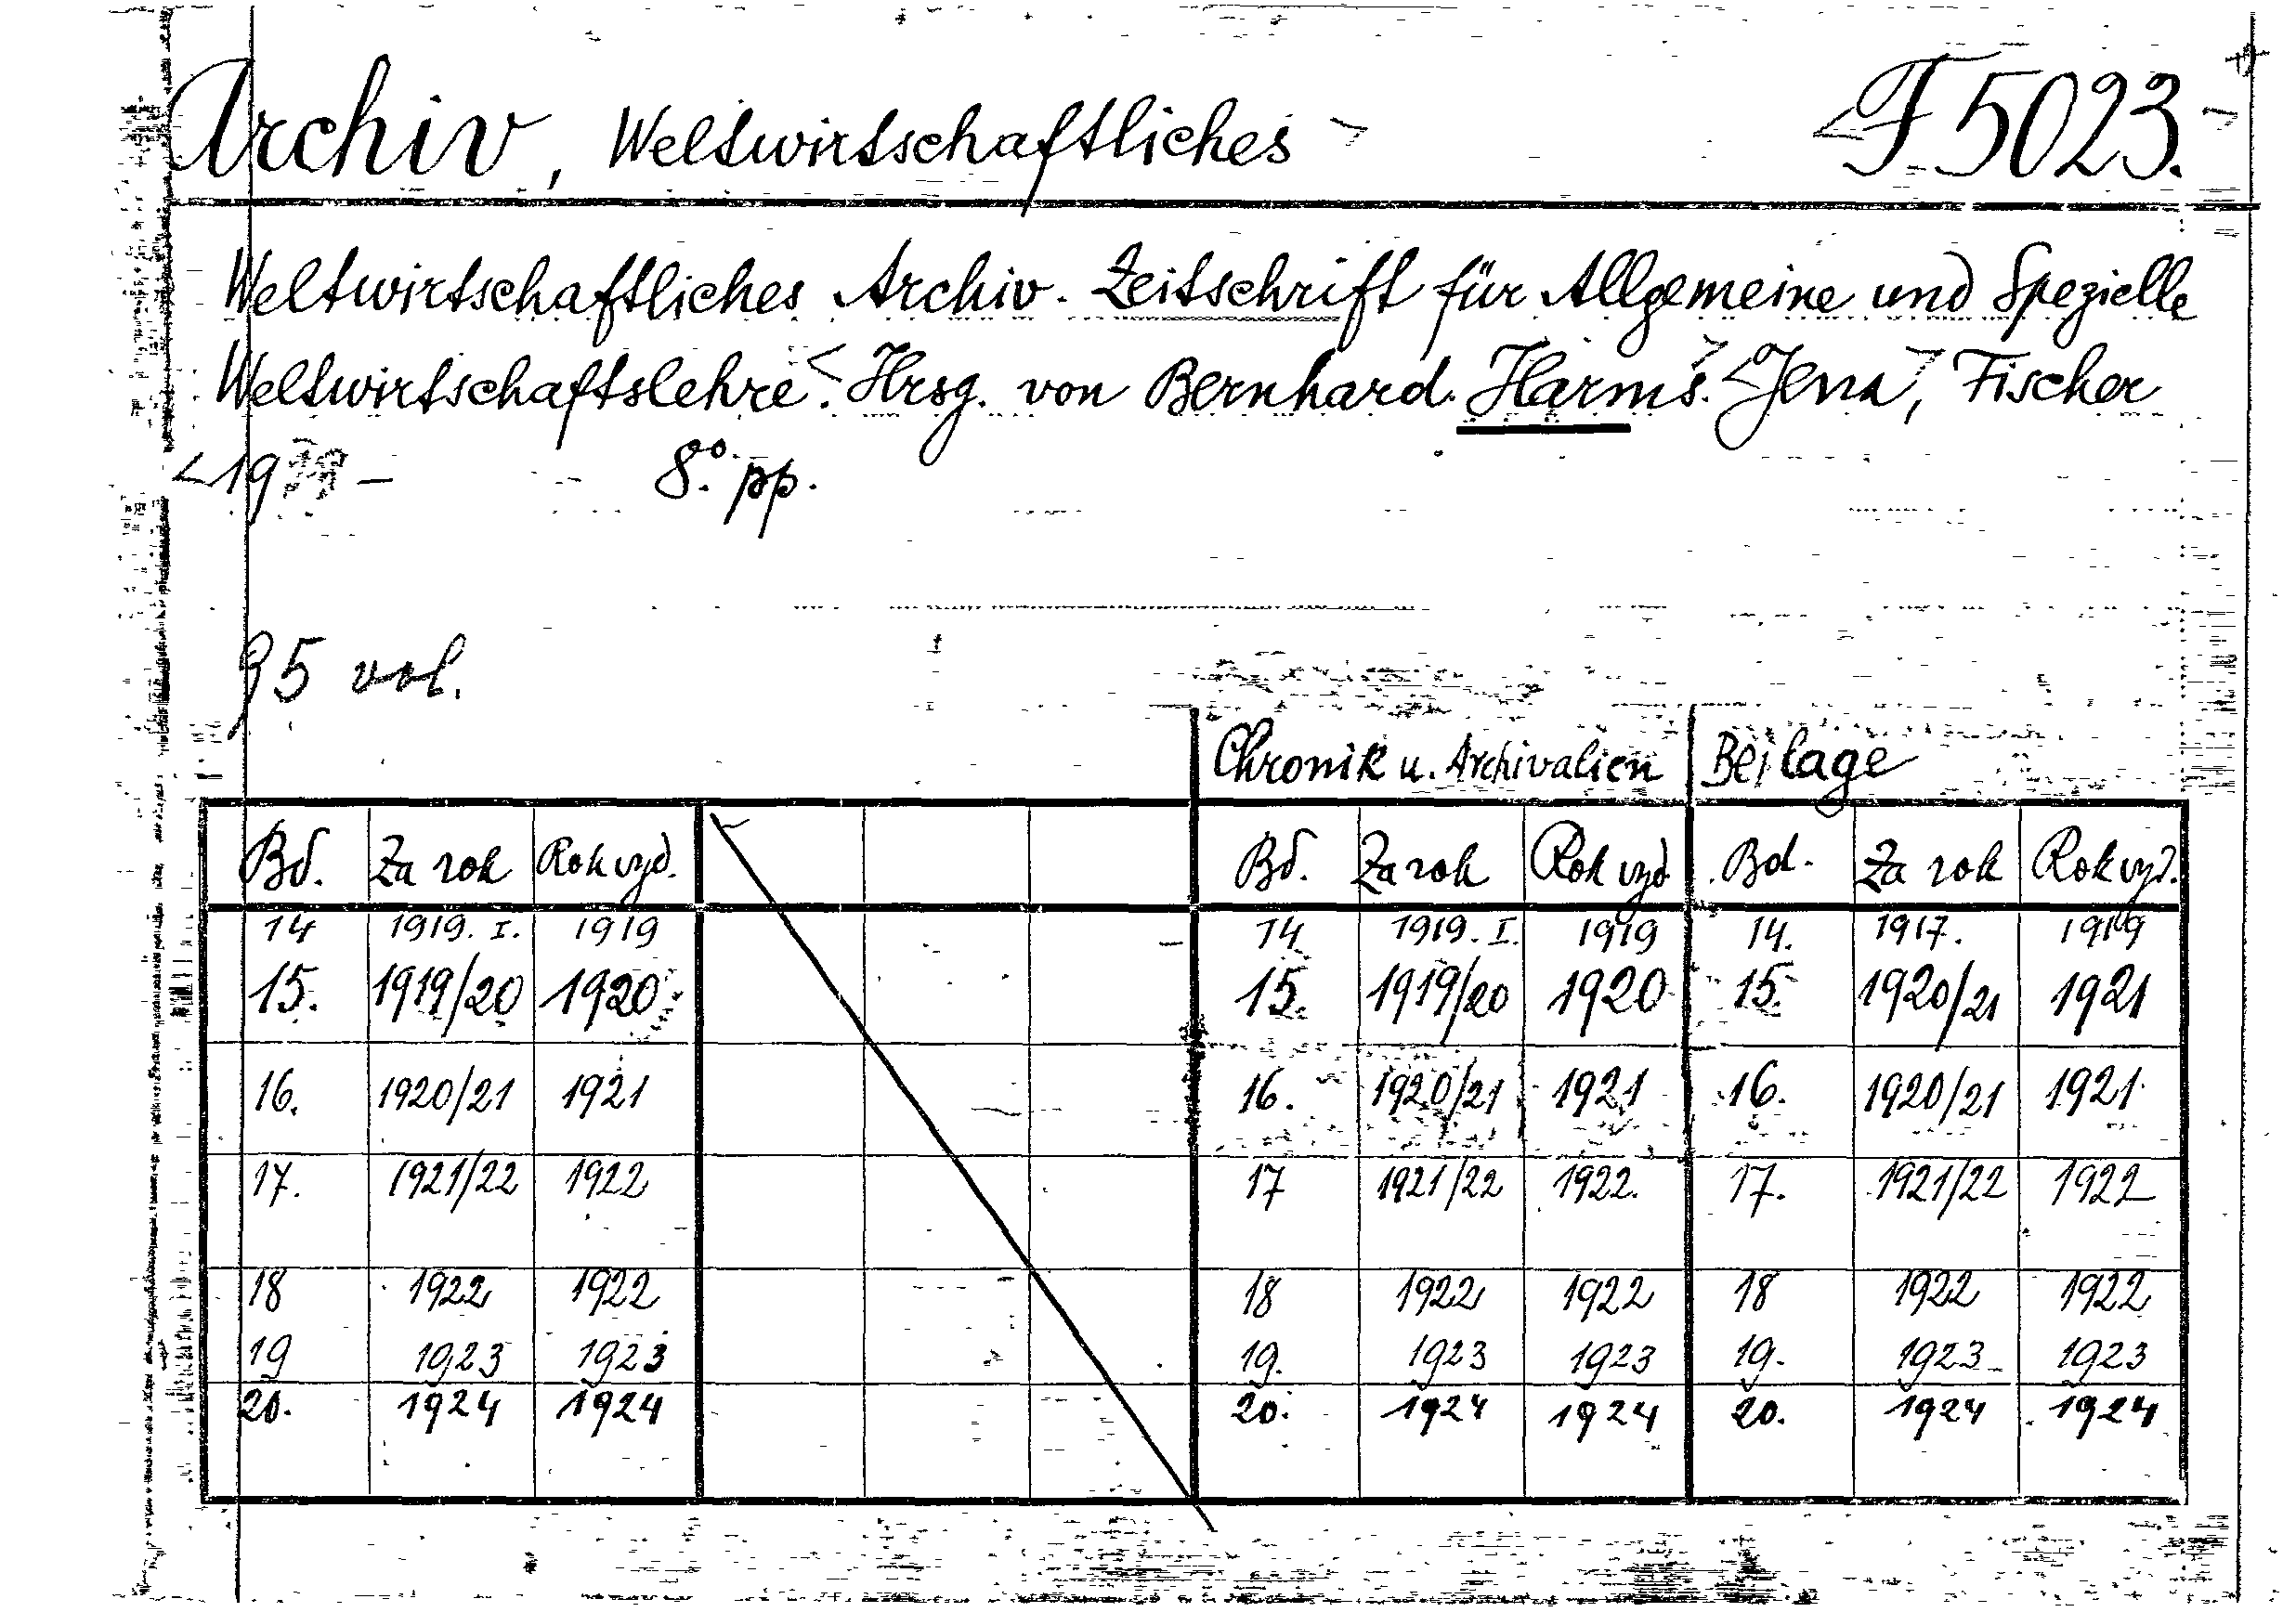 Archiv, Weltwirtschaftliches > < F 5023. >
Weltwirtschaftliches Archiv. Zeitschrift für Allgemeine und Spezielle
Weltwirtschaftslehre. < Hrsg. von Bernhard Harms. > < Jena >, Fischer
< 19 – 8° pp.
95 vol.
Chronik u. Archivalien Beilage
Bd. Za rok Rok vyd. Bd. Za rok Rok vyd Bd. Za rok Rok vyd.
14 1919. I. 1919 14 1919. I. 1919 14. 1917. 1919
15. 1919/20 1920 15. 1919/20 1920 15. 1920/21 1921
16. 1920/21 1921 16. 1920/21 1921 16. 1920/21 1921
17. 1921/22 1922 17 1921/22 1922. 17. 1921/22 1922
18 1922 1922 18 1922 1922 18 1922 1922
19 1923 1923 19. 1923 1923 19. 1923 1923
20. 1924 1924 20. 1924 1924 20. 1924 1924